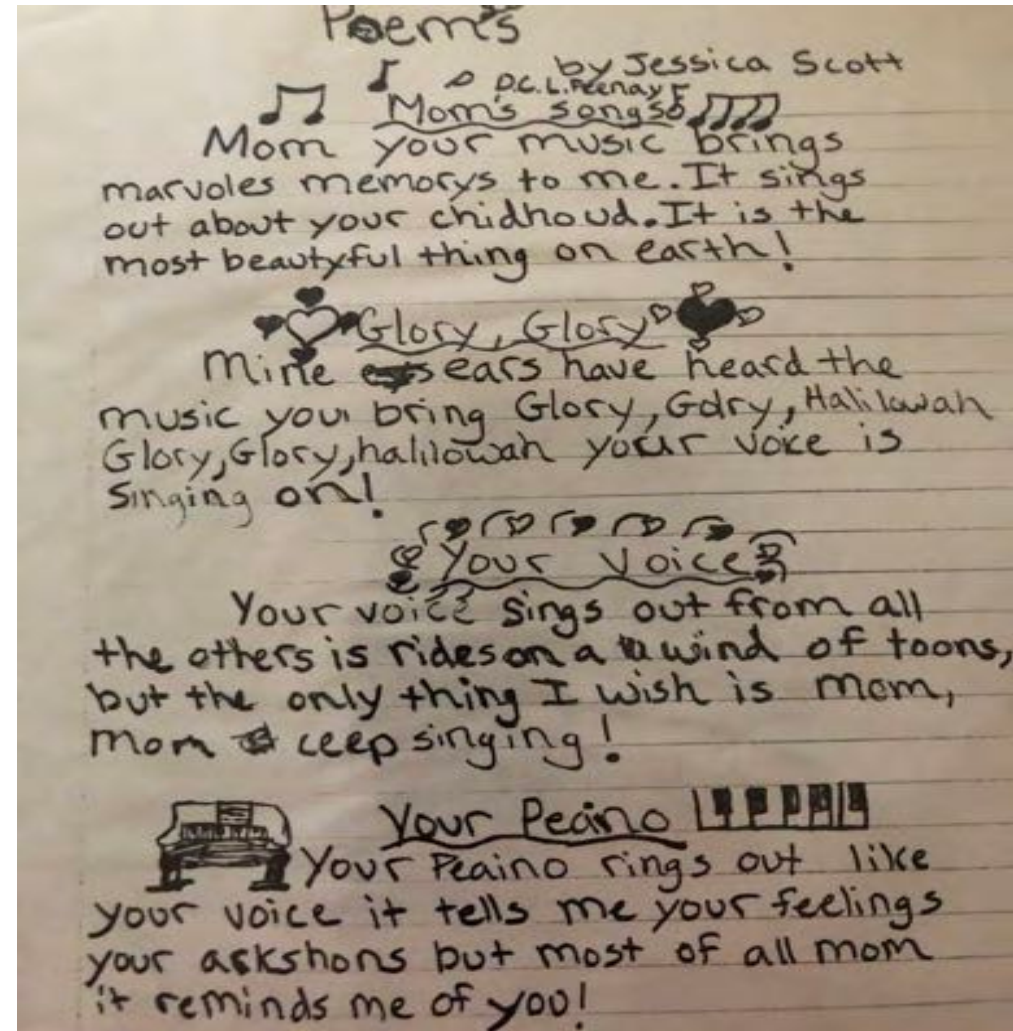 Poem's
by Jessica Scott
D.C.L. Feenay
Mom's songs
Mom your music brings
marvoles memorys to me. It sings
out about your chidhoud. It is the
most beautyful thing on earth!
Glory, Glory
Mine ears have heard the
music your bring Glory, Gdry, Halilowah
Glory, Glory, halilowah your voice is
singing on!
Your Voice
Your voice sings out from all
the others is rides on a wind of toons,
but the only thing I wish is mom,
mom ceep singing!
Your Peaino
Your Peaino rings out like
your voice it tells me your feelings
your askshons but most of all mom
it reminds me of you!